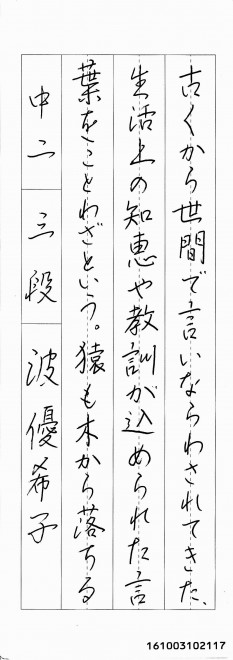 古くから世間で言いならわされてきた、
生活上の知恵や教訓が込められた言
葉をことわざという。猿も木から落ちる
中二 三段 波優希子
161003102117